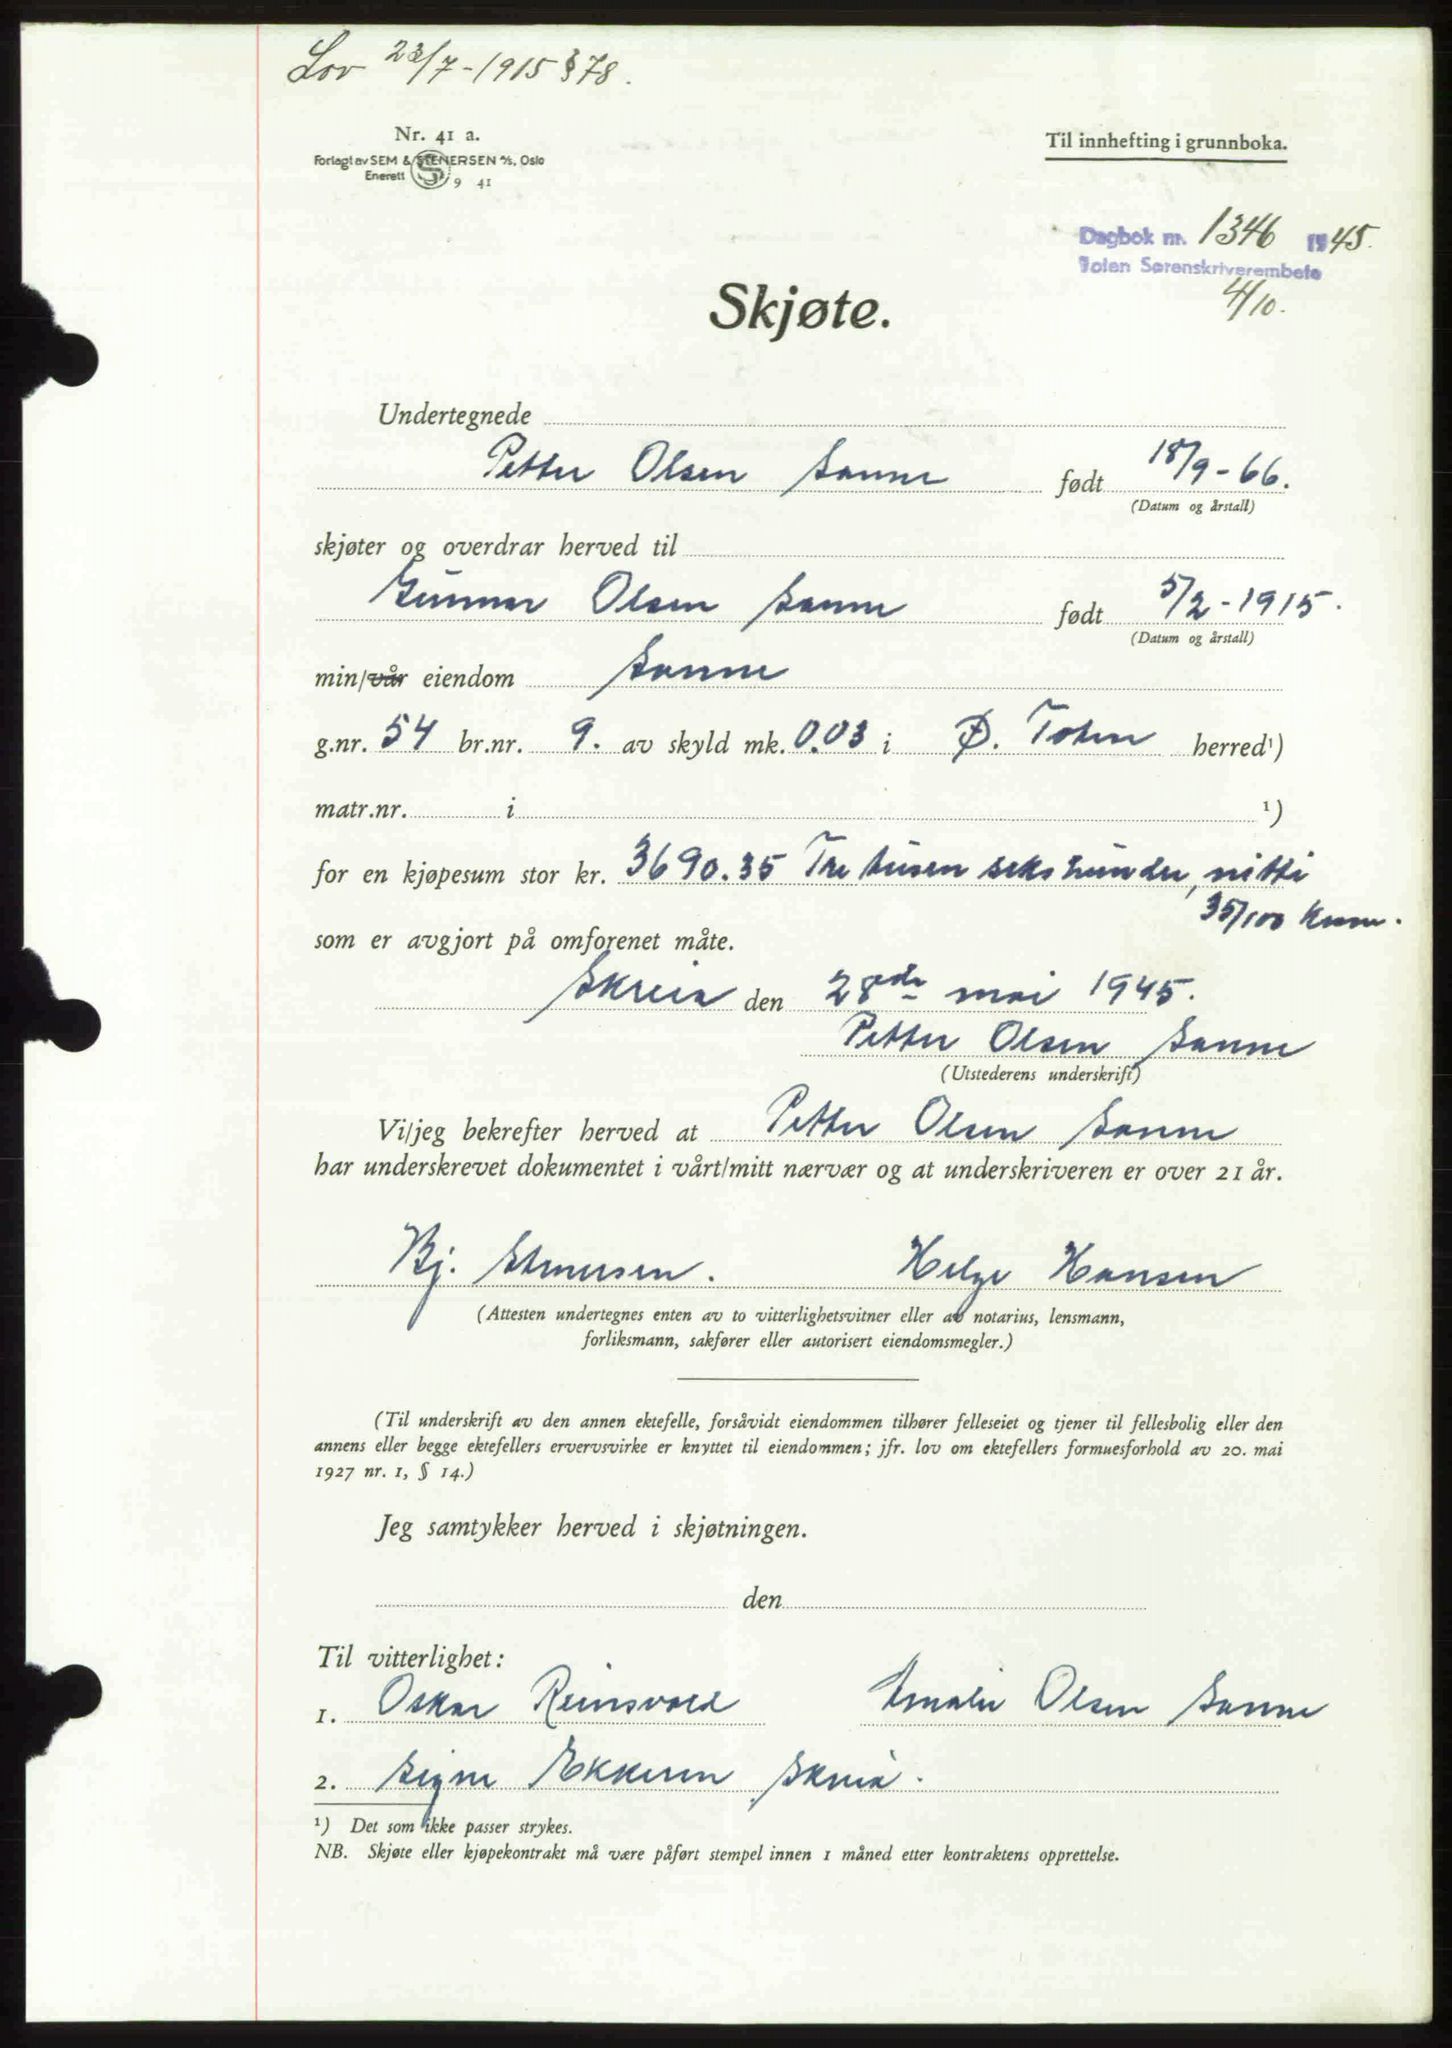 Lov 23/7-1915 § 78.
Nr. 41 a.
Forlagt av SEM & STENERSEN A/S, Oslo
Enerett S 9 41
Til innhefting i grunnboka.
Dagbok nr. 1346 1945.
Toten Sorenskriverembete
4/10.
Skjøte.
Undertegnede
Petter Olsen Sanne født 18/9-66.
(Datum og årstall)
skjøter og overdrar herved til
Gunnar Olsen Sanne født 5/2-1915.
(Datum og årstall)
min/vår eiendom Sanne
g.nr. 54 br.nr. 9. av skyld mk. 0.03 i Ø. Toten herred¹)
matr.nr. i ¹)
for en kjøpesum stor kr. 3690.35 Tre tusen seks hundre, nitti
35/100 Krone.
som er avgjort på omforenet måte.
Skreia den 28de mai 1945.
Petter Olsen Sanne
(Utstederens underskrift)
Vi/jeg bekrefter herved at Petter Olsen Sanne
har underskrevet dokumentet i vårt/mitt nærvær og at underskriveren er over 21 år.
Bj. Helge Hansen
(Attesten undertegnes enten av to vitterlighetsvitner eller av notarius, lensmann,
forliksmann, sakfører eller autorisert eiendomsmegler.)
(Til underskrift av den annen ektefelle, forsåvidt eiendommen tilhører felleseiet og tjener til fellesbolig eller den
annens eller begge ektefellers ervervsvirke er knyttet til eiendommen; jfr. lov om ektefellers formuesforhold av 20. mai
1927 nr. 1, § 14.)
Jeg samtykker herved i skjøtningen.
den
Til vitterlighet:
1. Oskar Reinsvold Amalie Olsen Sanne
2. Signe Ekkeren Skreia.
¹) Det som ikke passer strykes.
NB. Skjøte eller kjøpekontrakt må være påført stempel innen 1 måned etter kontraktens opprettelse.